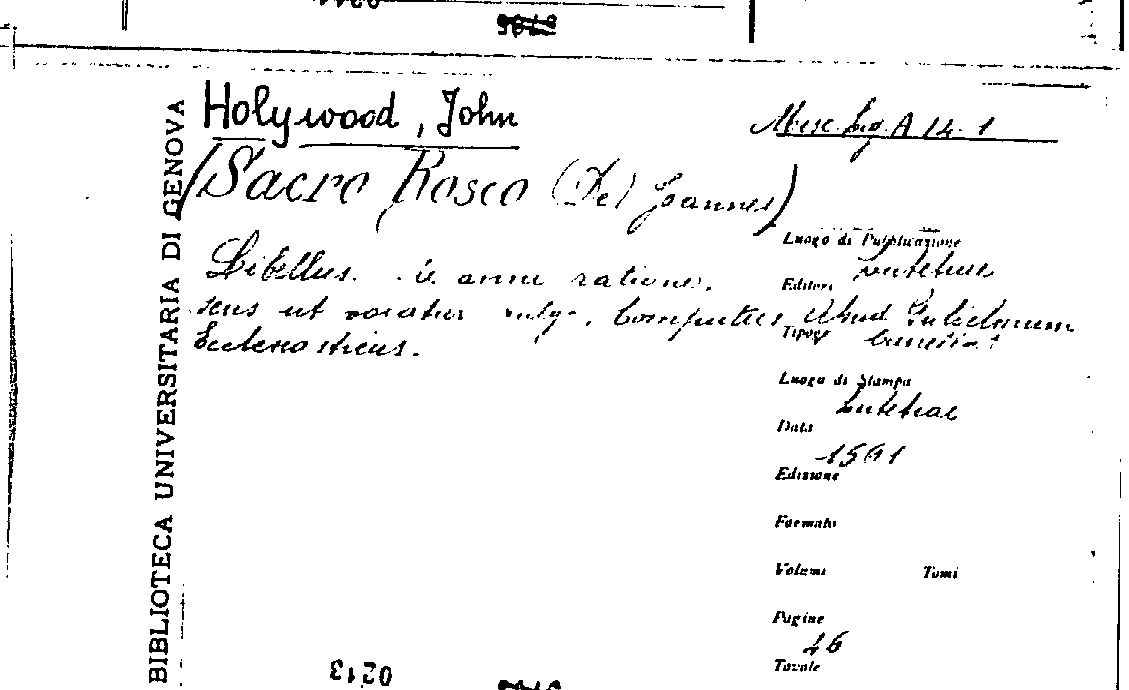 BIBLIOTECA UNIVERSITARIA DI GENOVA
Holywood, John
Misc. leg. A 14. 1
(Sacro Bosco (De) Joannes)
Luogo di Pubblicazione
Lutetiae
Libellus de anni ratione,
Editore
seus ut vocatur vulg., Computus
Apud Gulielmum
Ecclesiasticus.
Tipogr.
Luogo di Stampa
Lutetiae
Data
1561
Edizione
Formato
Volumi Tomi
Pagine
46
Tavole
0213